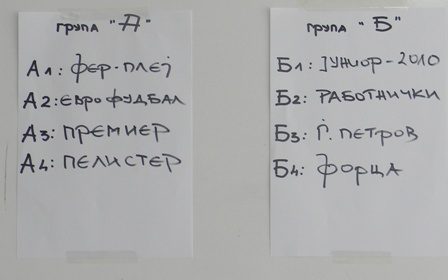 ГРУПА "А"
А1: ФЕР-ПЛЕЈ
А2: ЕВРОФУДБАЛ
А3: ПРЕМИЕР
А4: ПЕЛИСТЕР
ГРУПА "Б"
Б1: ЈУНИОР-2010
Б2: РАБОТНИЧКИ
Б3: Ѓ. ПЕТРОВ
Б4: ФОРЦА